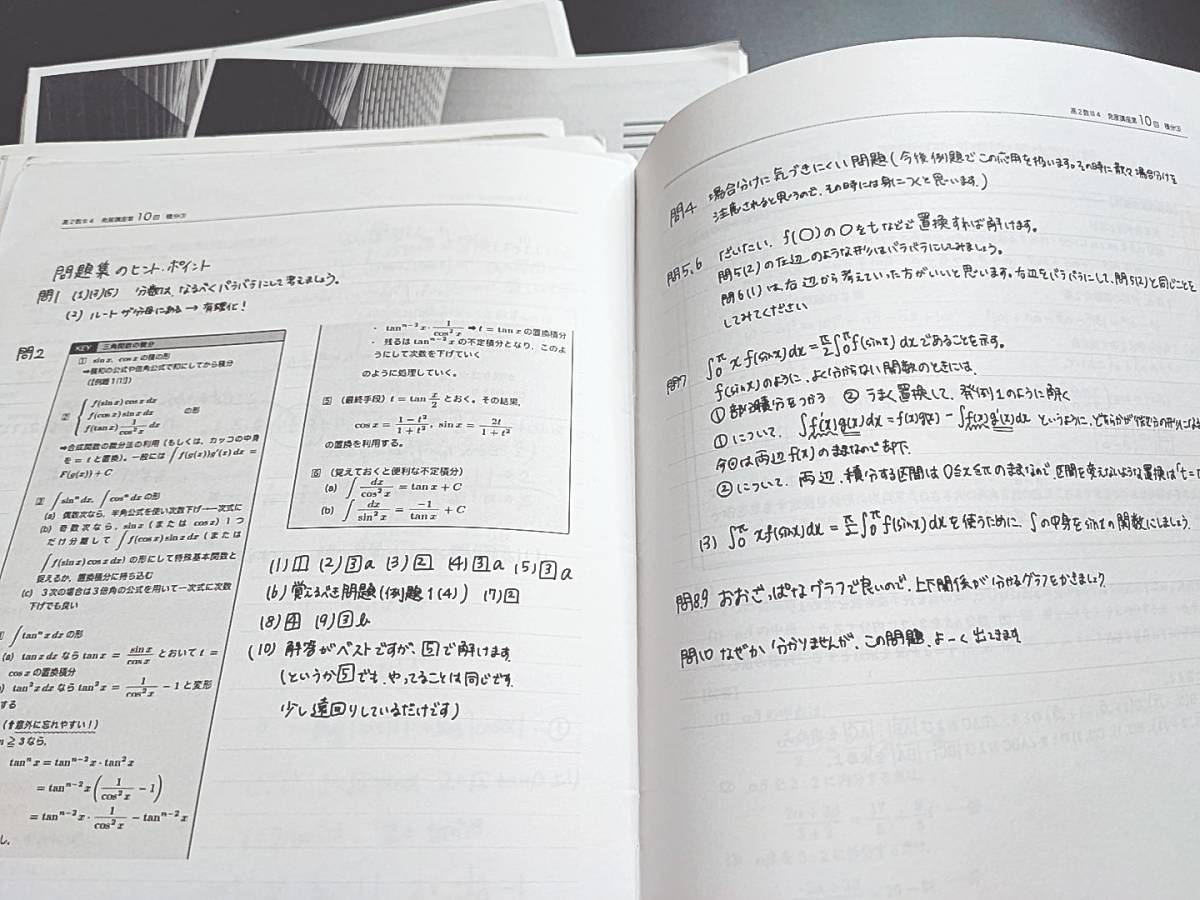 高2数Ⅲ4 発展講座第10回 積分③
問題集のヒント・ポイント
問1 (1)(3)(5) 分数は、なるべくバラバラにして考えましょう。
(2) ルートが分母にある → 有理化！
問2
KEY 三角関数の積分
① sin x, cos x の積の形
⇒積和の公式や倍角公式で和にしてから積分
(【例題1(1)】)
② { f(sin x) cos x dx
f(cos x) sin x dx の形
f(tan x) 1/cos² x dx
⇒合成関数の微分法の利用(もしくは、カッコの中身
を = t と置換)。一般には ∫ f(g(x))g′(x) dx =
F(g(x)) + C
③ ∫ sinⁿ dx, ∫ cosⁿ dx の形
(a) 偶数次なら、半角公式を使い次数下げ→一次式に
(b) 奇数次なら、sin x (または cos x) 1つ
だけ分離して ∫ f(cos x) sin x dx (または
∫ f(sin x) cos x dx) の形にして特殊基本関数と
捉えるか、置換積分に持ち込む
(c) 3次の場合は3倍角の公式を用いて一次式に次数
下げでも良い
∫ tanⁿ x dx の形
(a) tan x dx なら tan x = sin x/cos x とおいて t =
cos x の置換積分
tan² x dx なら tan² x = 1/cos² x − 1 と変形
する
(↑意外に忘れやすい！)
n ≧ 3 なら、
tanⁿ x = tanⁿ⁻² x · tan² x
= tanⁿ⁻² x (1/cos² x − 1)
= tanⁿ⁻² x · 1/cos² x − tanⁿ⁻² x
・ tanⁿ⁻² x · 1/cos² x ⇒ t = tan x の置換積分
・ 残るは tanⁿ⁻² x の不定積分となり、このよ
うにして次数を下げていく
のように処理していく。
⑤ (最終手段) t = tan x/2 とおく。その結果、
cos x = 1 − t²/1 + t², sin x = 2t/1 + t²
の置換を利用する。
⑥ (覚えておくと便利な不定積分)
(a) ∫ dx/cos² x = tan x + C
(b) ∫ dx/sin² x = −1/tan x + C
(1) 1 (2) 3 a (3) 2 (4) 3 a (5) 3 a
(6) 覚えるべき問題(例題1(4)) (7) 2
(8) 4 (9) 3 b
(10) 解答がベストですが、5で解けます。
(というか5でも、やってることは同じです。
少し遠回りしているだけです)
高2数Ⅲ4 発展講座第10回 積分③
問4 場合分けに気づきにくい問題(今後例題でこの応用を扱います。その時に散々場合分けを
注意されると思うので、その時には身につくと思います。)
問5,6 だいたい、f(○)の○をtなどで置換すれば解けます。
問5(2)の左辺のような形はバラバラにしてみましょう。
問6(1)は、右辺から考えていった方がいいと思います。右辺をバラバラにして、問5(2)と同じことを
してみてください
問7 ∫₀^π x f(sin x) dx = π/2 ∫₀^π f(sin x) dx であることを示す。
f(sin x)のように、よく分からない関数のときには、
① 部分積分をつかう ② うまく置換して、発例1のように解く
①について、∫f′(x)g(x)dx = f(x)g(x) − ∫f(x)g′(x)dx というように、どちらかが微分の形になる
今回は両辺f(x)のままなので却下
②について、両辺、積分する区間は 0≦x≦π のままなので、区間を変えないような置換は「t =
(3) ∫₀^π x f(sin x) dx = π/2 ∫₀^π f(sin x) dx を使うために、∫の中身をsin xの関数にしましょう。
問8,9 おおざっぱなグラフで良いので、上下関係が分かるグラフをかきましょう
問10 なぜか分かりませんが、この問題、よーく出てきます